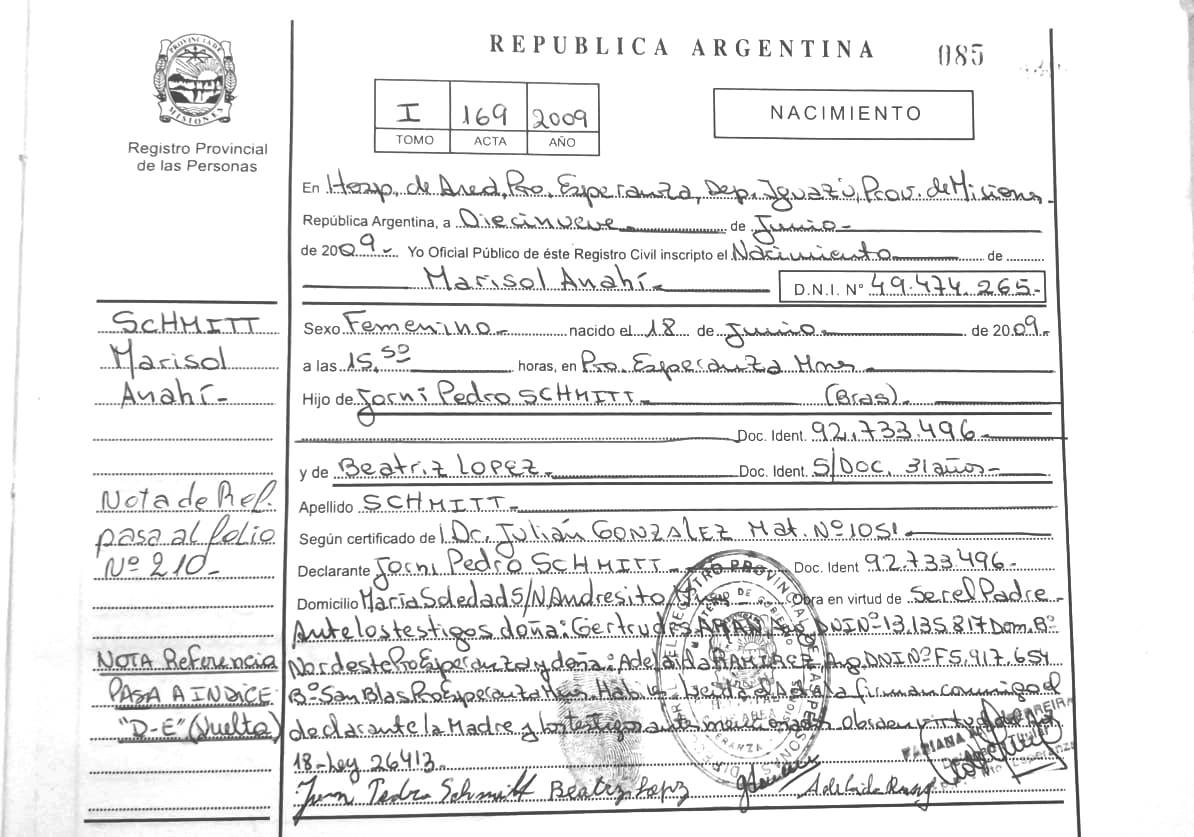 REPUBLICA ARGENTINA
085
PROVINCIA DE MISIONES
Registro Provincial
de las Personas
I 169 2009
TOMO ACTA AÑO
NACIMIENTO
En Hosp. de Area, Pto. Esperanza, Dep. Iguazú, Prov. de Misions
República Argentina, a Diecinueve de Junio
de 2009 Yo Oficial Público de éste Registro Civil inscripto el Nacimiento de
Marisol Anahí D.N.I. Nº 49.474.265-
SCHMITT
Marisol
Anahí-
Sexo Femenino nacido el 18 de Junio de 2009
a las 15,50 horas, en Pto. Esperanza Mnes
Hijo de Jorni Pedro SCHMITT (Bras)
Doc. Ident. 92.733.496
y de Beatriz LOPEZ Doc. Ident. S/DOC. 31 años-
Apellido SCHMITT
Según certificado de Dr. Julián GONZALEZ Mat. Nº 1051
Declarante Jorni Pedro SCHMITT Doc. Ident 92.733.496
Domicilio María Soledad S/N Andresito Obra en virtud de Ser el Padre
Nota de Ref.
pasa al folio
Nº 210-
Ante los testigos doña: Gertrudes DNI Nº 13.135.817 Dom. Bº
Nordeste Pto Esperanza y doña: Adelaida RAMIREZ Arg. DNI Nº F5.917.654
Bº San Blas Pto Esperanza Mnes. Leida el Acta la firman conmigo el
declarante la Madre y los testigos antes mencionados
18-Ley 26413
NOTA Referencia
PASA A INDICE
"D-E" (Vuelto)
Pedro Schmitt Beatriz Lopez Adelaida